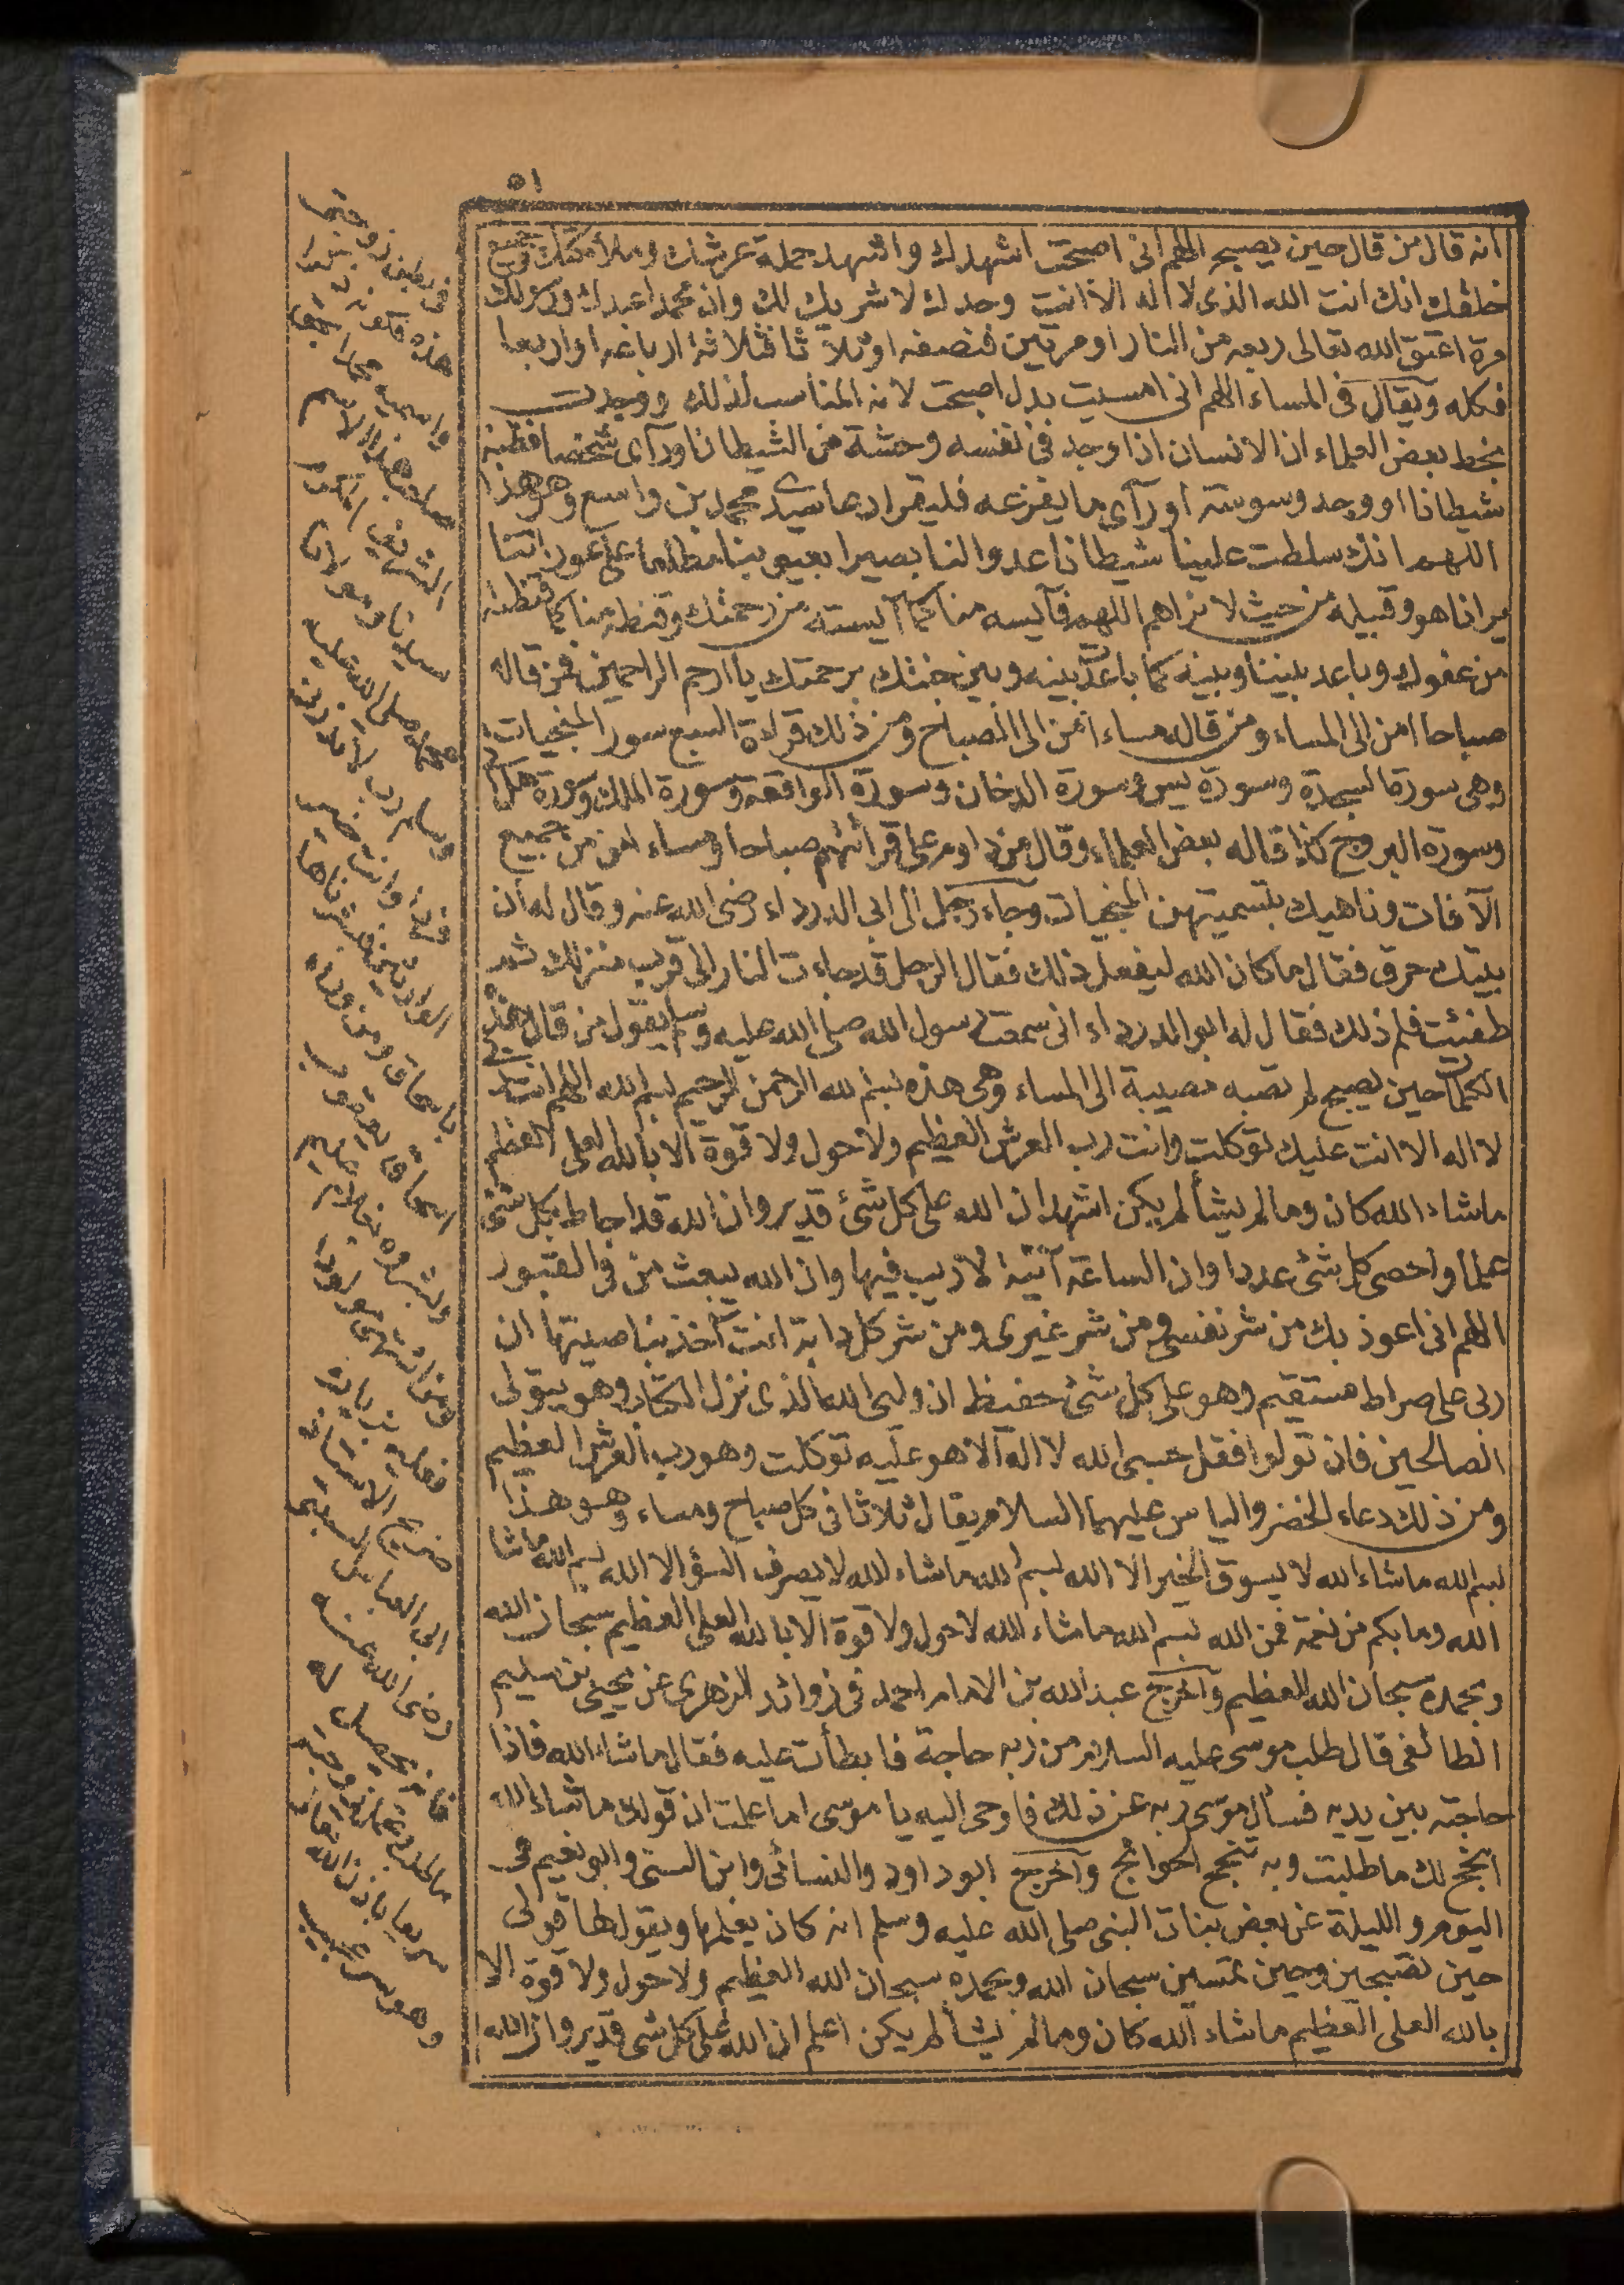 ٥١
انه قال من قال حين يصبح اللهم انى اصبحت اشهدك واشهد حملة عرشك وملائكتك وجميع
خلقك انك انت الله الذى لا اله الا انت وحدك لا شريك لك وان محمدا عبدك ورسولك
مرة اعتق الله تعالى ربعه من النار او مرتين فنصفه او ثلاثا فثلاثة ارباعه او اربعا
فكله ويقال فى المساء اللهم انى امسيت بدل اصبحت لانه المناسب لذلك ووجدت
بخط بعض العلماء ان الانسان اذا وجد فى نفسه وحشة من الشيطان او رآى شخصا فظنه
شيطانا او وجد وسوسة او رآى ما يفزعه فليقرا دعا سيدى محمد بن واسع وهو هذا
اللهم انك سلطت علينا شيطانا عدوا لنا بصيرا بعيوبنا مطلعا على عوراتنا
يرانا هو وقبيله من حيث لا نراهم اللهم فآيسه منا كما آيسته من رحمتك وقنطه منا كما قنطته
من عفوك وباعد بيننا وبينه كما باعدت بينه وبين جنتك برحمتك يا ارحم الراحمين فمن قاله
صباحا امن الى المساء ومن قاله مساء امن الى الصباح ومن ذلك قراءة السبع سور المنجيات
وهى سورة السجدة وسورة يس وسورة الدخان وسورة الواقعة وسورة الملك وسورة هل اتى
وسورة البروج كذا قاله بعض العلماء وقال من داوم على قرائتهم صباحا ومساء امن من جميع
الآفات وناهيك بتسميتهن المنجيات وجاء رجل الى ابى الدرداء رضى الله عنه وقال له ان
بيتك حرق فقال ما كان الله ليفعل ذلك فقال الرجل قد جاءت النار الى قرب منزلك ثم
طفئت فلم ذلك فقال له ابو الدرداء انى سمعت رسول الله صلى الله عليه وسلم يقول من قال هذه
الكلمات حين يصبح لم تصبه مصيبة الى المساء وهى هذه بسم الله الرحمن الرحيم بسم الله اللهم انت ربى
لا اله الا انت عليك توكلت وانت رب العرش العظيم ولا حول ولا قوة الا بالله العلى العظيم
ما شاء الله كان وما لم يشأ لم يكن اشهد ان الله على كل شئ قدير وان الله قد احاط بكل شئ
علما واحصى كل شئ عددا وان الساعة آتية لا ريب فيها وان الله يبعث من فى القبور
اللهم انى اعوذ بك من شر نفسى ومن شر غيرى ومن شر كل دابة انت آخذ بناصيتها ان
ربى على صراط مستقيم وهو على كل شئ حفيظ ان وليى الله الذى نزل الكتاب وهو يتولى
الصالحين فان تولوا فقل حسبى الله لا اله الا هو عليه توكلت وهو رب العرش العظيم
ومن ذلك دعاء الخضر والياس عليهما السلام يقال ثلاثا فى كل صباح ومساء وهو هذا
بسم الله ما شاء الله لا يسوق الخير الا الله بسم الله ما شاء الله لا يصرف السؤ الا الله بسم الله ما شا
الله وما بكم من نعمة فمن الله بسم الله ما شاء الله لا حول ولا قوة الا بالله العلى العظيم سبحان الله
وبحمده سبحان الله العظيم واخرج عبد الله بن الامام احمد فى زوائد الزهرى عن يحيى بن سليم
الطائفى قال طلب موسى عليه السلام من ربه حاجة فابطأت عليه فقال ما شاء الله فاذا
حاجته بين يديه فسأل موسى ربه عن ذلك فاوحى اليه يا موسى اما علمت ان قولك ما شاء الله
انجح لك ما طلبت وبه تنجح الحوائج واخرج ابو داود والنسائى وابن السنى وابو نعيم فى
اليوم والليلة عن بعض بنات النبى صلى الله عليه وسلم انه كان يعلمها ويقول لها قولى
حين تصبحين وحين تمسين سبحان الله وبحمده سبحان الله العظيم ولا حول ولا قوة الا
بالله العلى العظيم ما شاء الله كان وما لم يشأ لم يكن اعلم ان الله على كل شئ قدير وان الله
فى بطن زوجتى
هذه فكونه ذكرا
واسميه محمدا بحق
صاحب هذا الاسم
الشريف المكرم
سيدنا ومولانا
محمد صلى الله عليه
وسلم رب لا تذرنى
فردا وانت خير
الوارثين فبشرناها
باسحاق ومن وراء
اسحاق يعقوب
وبشروه بغلام عليم
ومن اشتهى مولودا
فعليه بزيارة
ضريح الاستاذ
ابى العباس السبتى
رضى الله عنه
فانه يحصل له
سريعا باذن الله تعالى